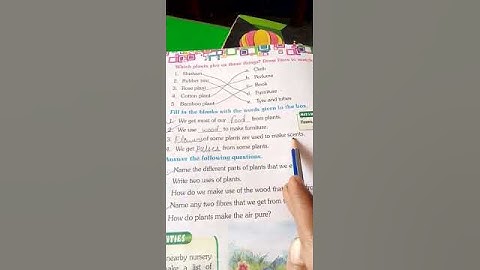 Which plants give us these things? Draw lines to match
1. Bamboo
2. Rubber tree
3. Rose plant
4. Cotton plant
5. Bamboo plant
a. Cloth
b. Perfume
c. Book
d. Furniture
e. Tyre and tubes
Fill in the blanks with the words given in the box.
1. We get most of our food from plants.
2. We use wood to make furniture.
3. of some plants are used to make scents.
4. We get Pulses from some plants.
Answer the following questions.
Name the different parts of plants that we
Write two uses of plants.
How do we make use of the wood that
Name any two fibres that we get from
How do plants make the air pure?
nearby nursery
ake a list of